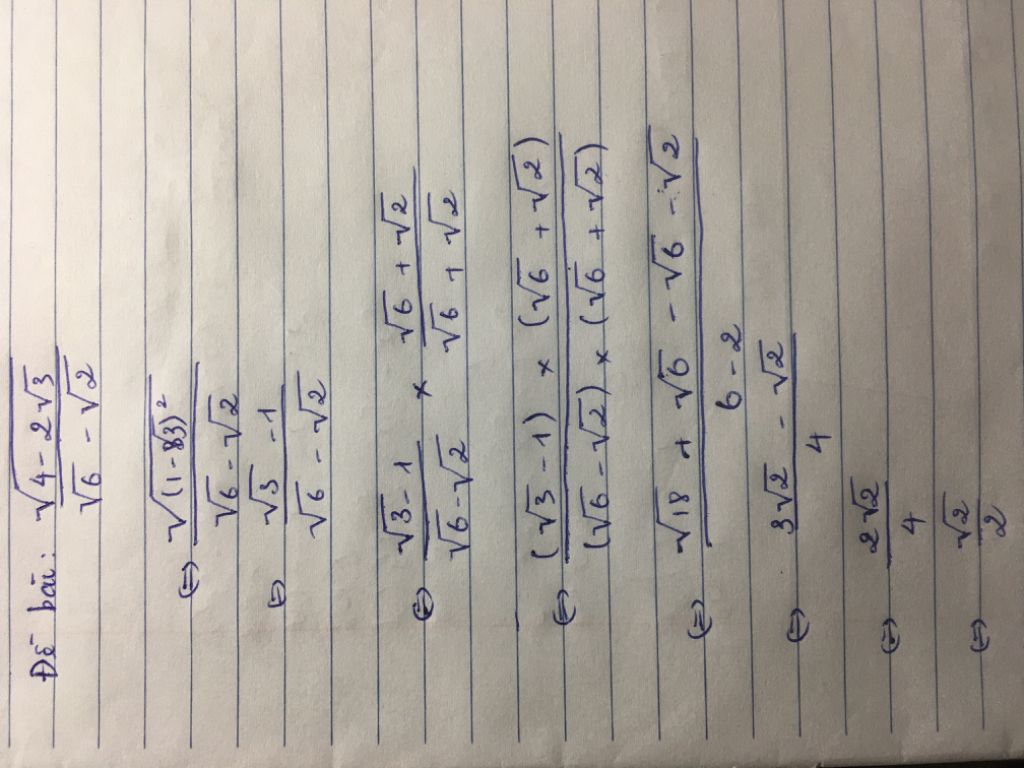 Đề bài: \frac{\sqrt{4 - 2\sqrt{3}}}{\sqrt{6} - \sqrt{2}}
(=) \frac{\sqrt{(1 - \sqrt{3})^2}}{\sqrt{6} - \sqrt{2}}
(=) \frac{\sqrt{3} - 1}{\sqrt{6} - \sqrt{2}}
(=) \frac{\sqrt{3} - 1}{\sqrt{6} - \sqrt{2}} × \frac{\sqrt{6} + \sqrt{2}}{\sqrt{6} + \sqrt{2}}
(=) \frac{(\sqrt{3} - 1) × (\sqrt{6} + \sqrt{2})}{(\sqrt{6} - \sqrt{2}) × (\sqrt{6} + \sqrt{2})}
(=) \frac{\sqrt{18} + \sqrt{6} - \sqrt{6} - \sqrt{2}}{6 - 2}
(=) \frac{3\sqrt{2} - \sqrt{2}}{4}
(=) \frac{2\sqrt{2}}{4}
(=) \frac{\sqrt{2}}{2}